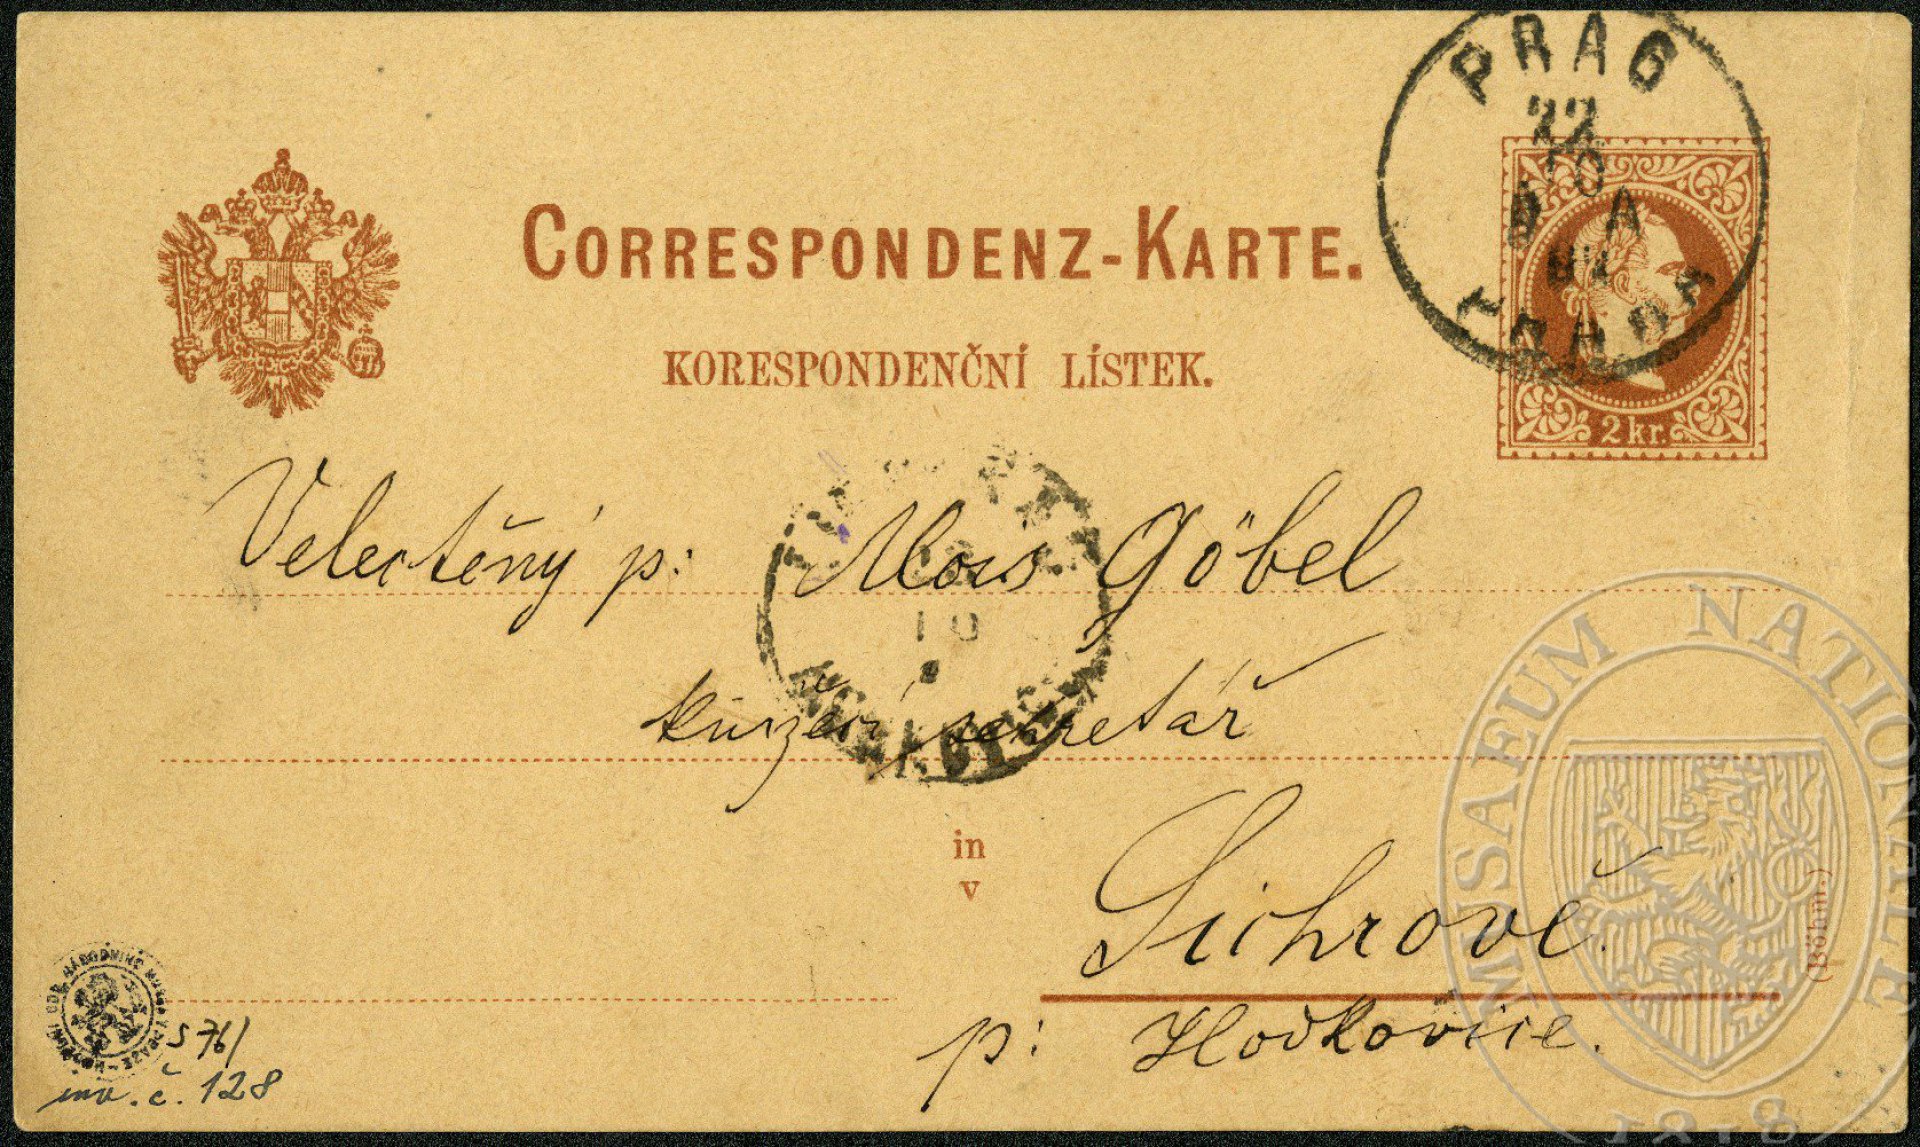 PRAG
22
10
A
PRAHA
CORRESPONDENZ-KARTE.
KORESPONDENČNÍ LÍSTEK.
2 kr.
Velectěný p: Alois Göbel
knížecí sekretář
in
v
Sichrově.
p: Hodkovice.
(Böhm.)
S 76/
inv. č. 128
MUSAEUM NATIONALE
1818